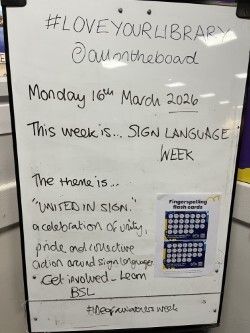 #LOVEYOURLIBRARY
@allontheboard
Monday 16th March 2026
This week is... SIGN LANGUAGE
WEEK
The theme is...
"UNITED IN SIGN."
a celebration of unity,
pride and collective
action around sign language.
Get involved - Learn
BSL
Fingerspelling
flash cards